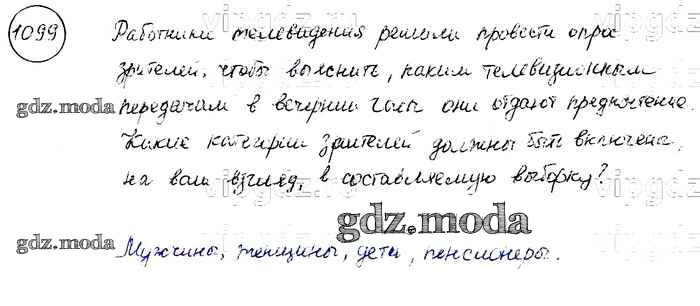 1099
Работники телевидения решили провести опрос
зрителей, чтобы выяснить, каким телевизионным
передачам в вечерние часы они отдают предпочтение.
Какие категории зрителей должны быть включены,
на ваш взгляд, в составляемую выборку?
Мужчины, женщины, дети, пенсионеры.
gdz.moda
gdz.moda
gdz.moda
vipgdz
vipgdz